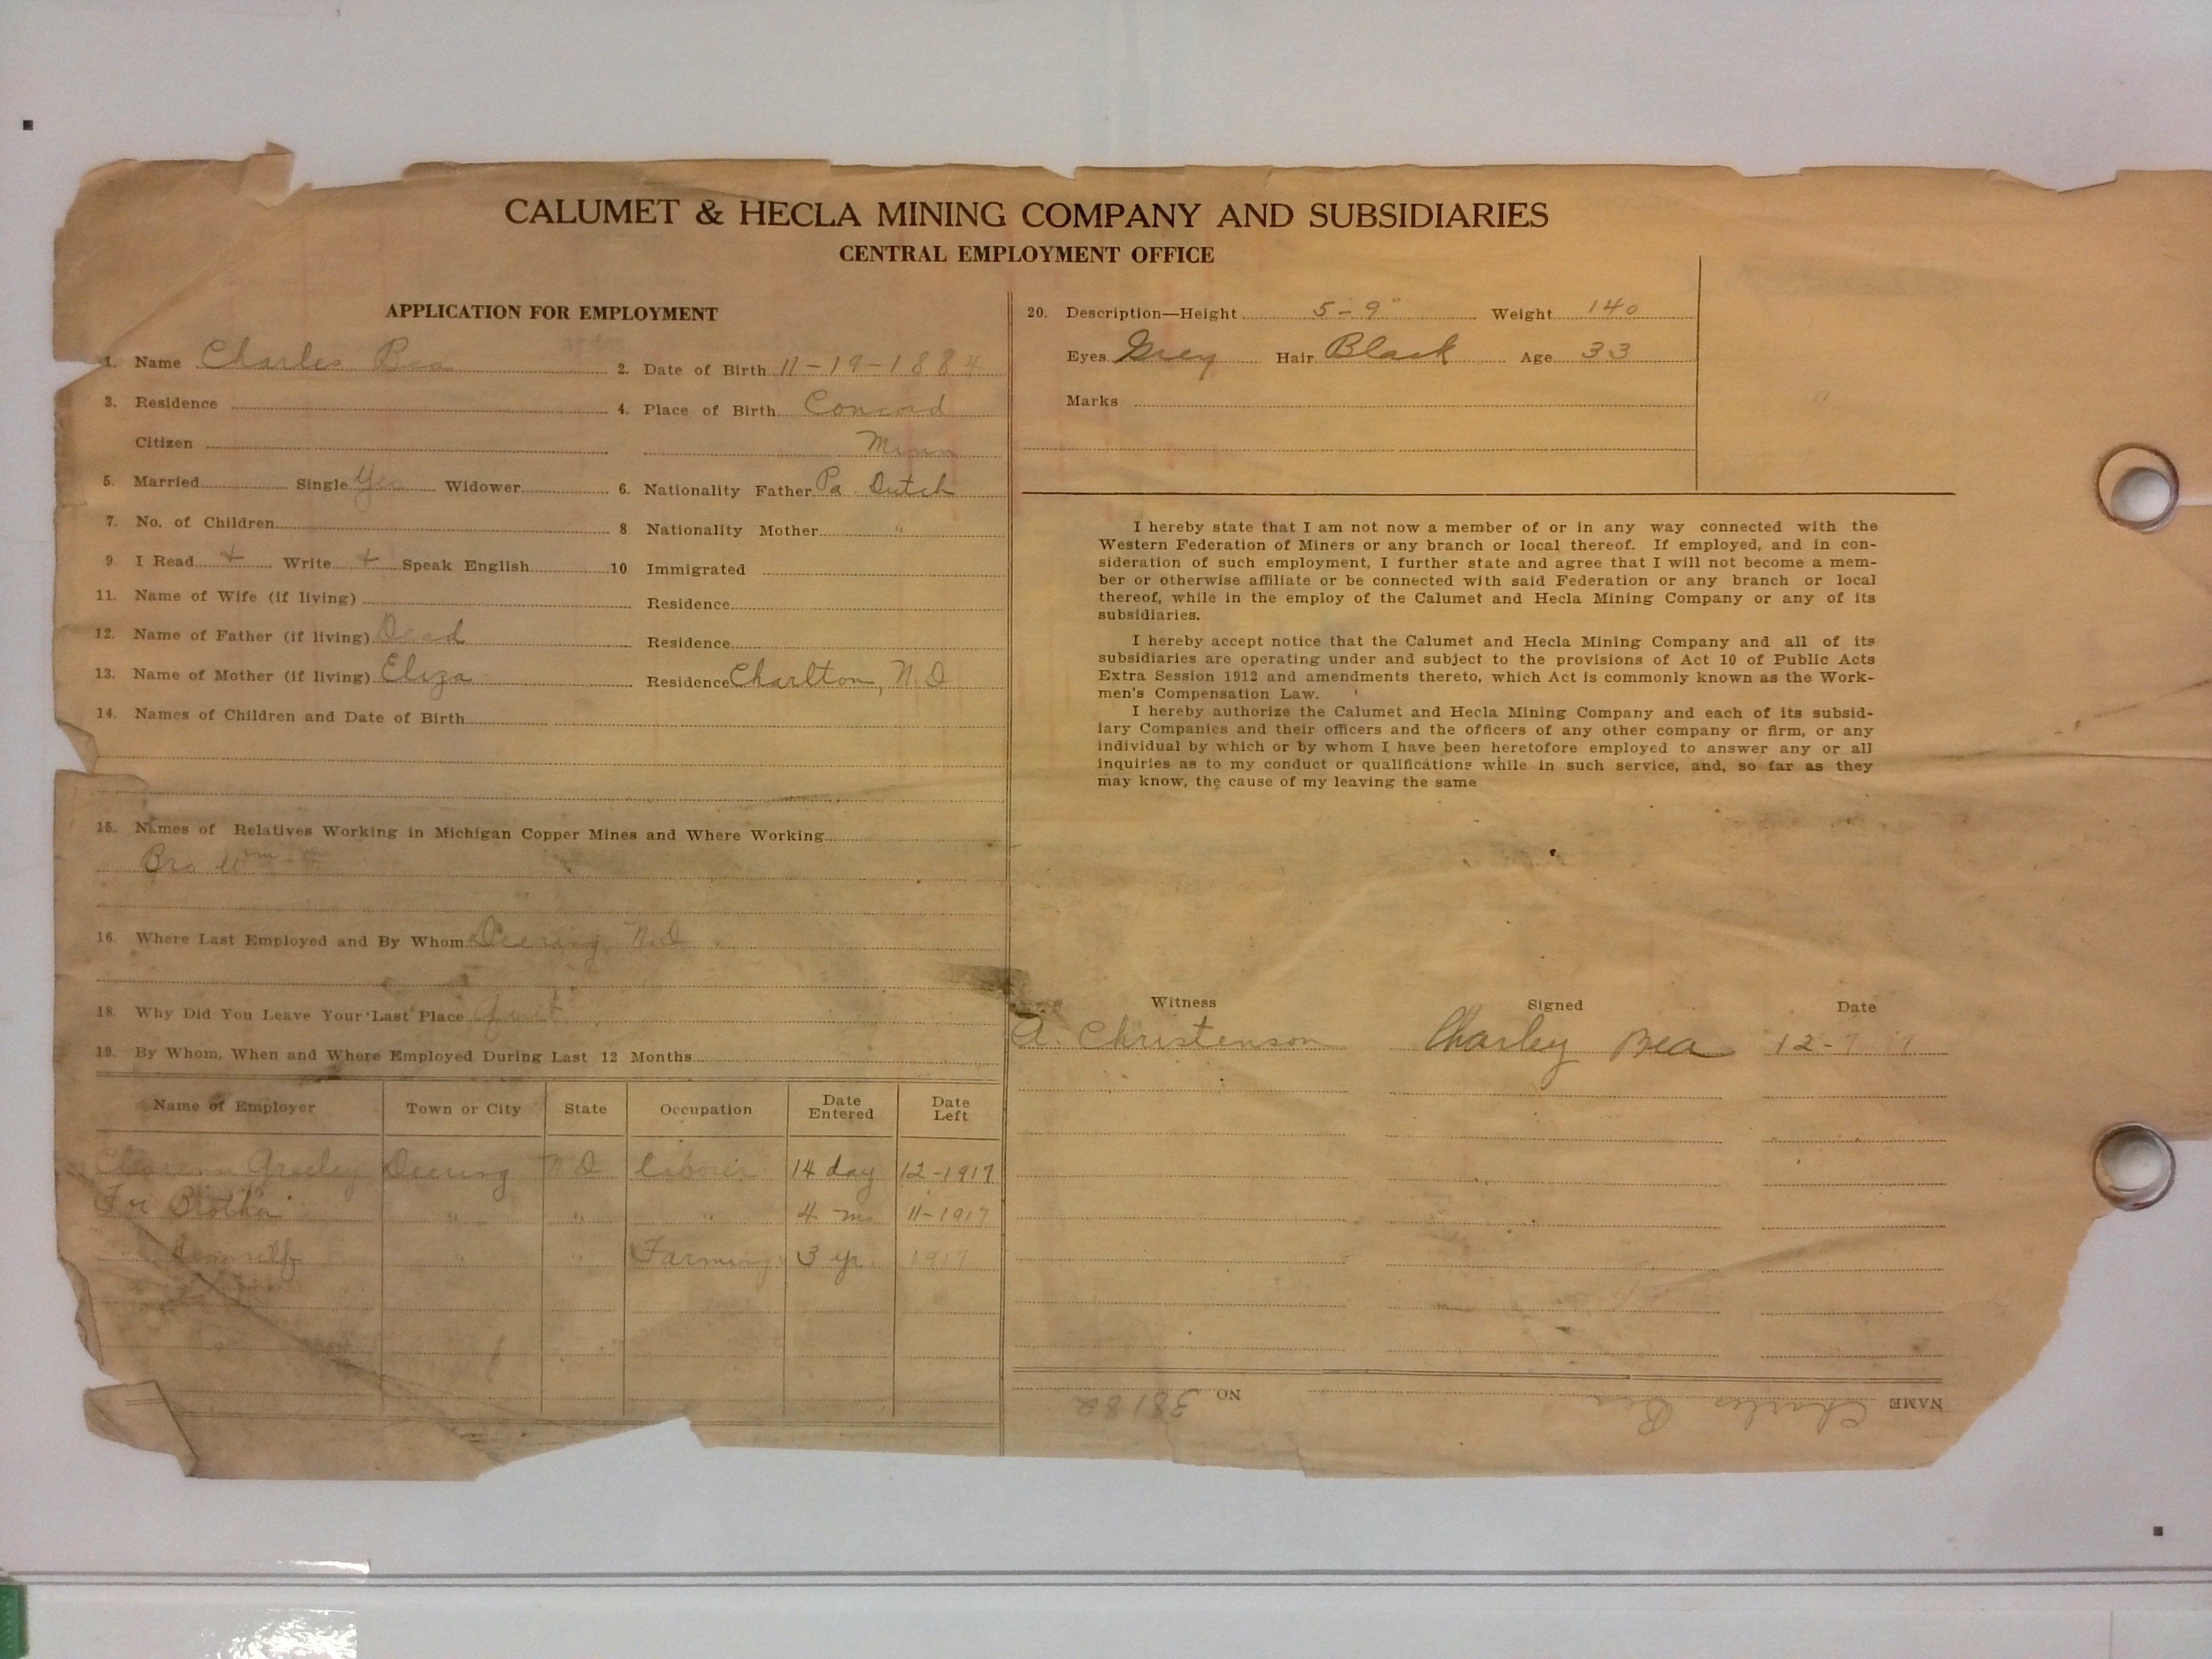 CALUMET & HECLA MINING COMPANY AND SUBSIDIARIES
CENTRAL EMPLOYMENT OFFICE
APPLICATION FOR EMPLOYMENT
1. Name Charles Bea 2. Date of Birth 11-19-1884
3. Residence 4. Place of Birth Concord
Citizen Minn
5. Married Single Yes Widower 6. Nationality Father Pa. Dutch
7. No. of Children 8 Nationality Mother "
9 I Read + Write + Speak English 10 Immigrated
11. Name of Wife (if living) Residence
12. Name of Father (if living) Dead Residence
13. Name of Mother (if living) Eliza Residence Charlton, N.D
14. Names of Children and Date of Birth
15. Names of Relatives Working in Michigan Copper Mines and Where Working
Bro Wm
16. Where Last Employed and By Whom Deering, N.D
18. Why Did You Leave Your Last Place Quit
19. By Whom, When and Where Employed During Last 12 Months
Name of Employer Town or City State Occupation Date Entered Date Left
Greeley Deering N D Laborer 14 day 12-1917
For Brother " " " 4 mo 11-1917
" himself " " Farming 3 yr. 1917
20. Description—Height 5-9" Weight 140
Eyes Grey Hair Black Age 33
Marks
I hereby state that I am not now a member of or in any way connected with the
Western Federation of Miners or any branch or local thereof. If employed, and in con-
sideration of such employment, I further state and agree that I will not become a mem-
ber or otherwise affiliate or be connected with said Federation or any branch or local
thereof, while in the employ of the Calumet and Hecla Mining Company or any of its
subsidiaries.
I hereby accept notice that the Calumet and Hecla Mining Company and all of its
subsidiaries are operating under and subject to the provisions of Act 10 of Public Acts
Extra Session 1912 and amendments thereto, which Act is commonly known as the Work-
men's Compensation Law.
I hereby authorize the Calumet and Hecla Mining Company and each of its subsid-
iary Companies and their officers and the officers of any other company or firm, or any
individual by which or by whom I have been heretofore employed to answer any or all
inquiries as to my conduct or qualifications while in such service, and, so far as they
may know, the cause of my leaving the same
Witness Signed Date
A. Christenson Charley Bea 12-7
NAME Charles Bea NO 38182